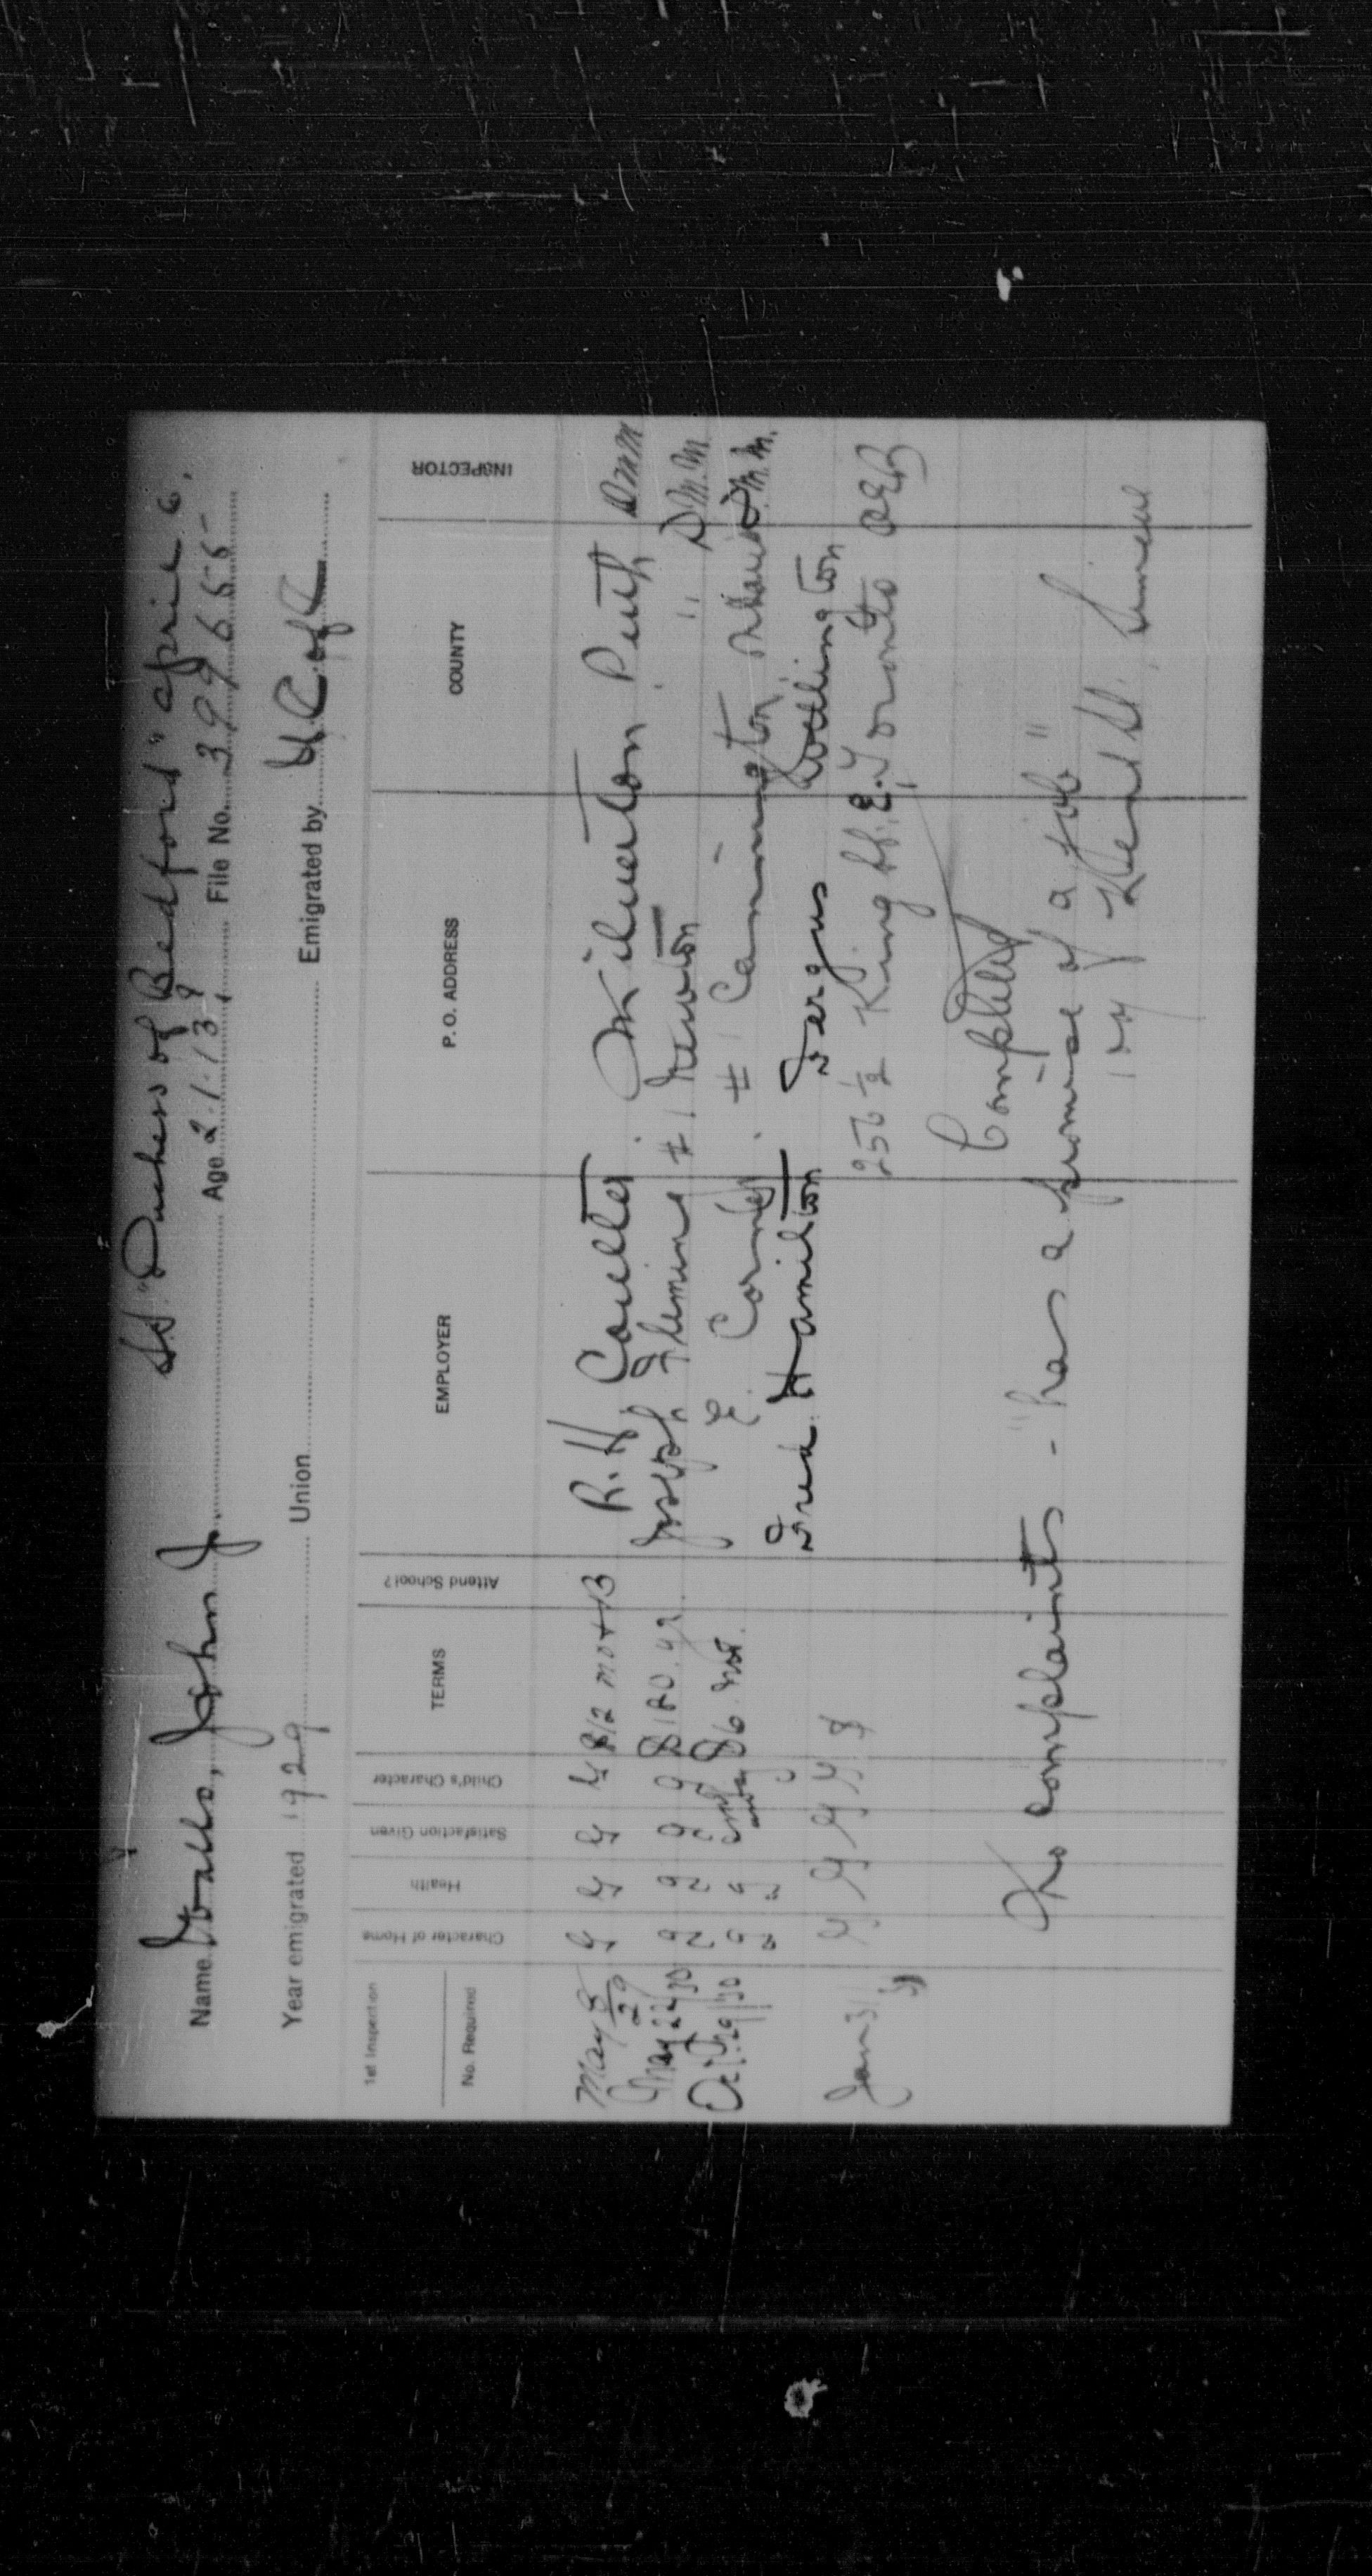 SS "Duchess of Bedford" April 6.
Name Walls, John J. Age 2.1.13 File No. 399655
Year emigrated 1929 Union Emigrated by U.C. of C
1st Inspection No. Required Character of Home Health Satisfaction Given Child's Character TERMS Attend School? EMPLOYER P. O. ADDRESS COUNTY INSPECTOR
May 8/29 G G G G $12 mo + B R. H. Coulter Milverton Perth DMM
May 22/30 g g g g $180. yr Joseph Fleming #1 Newton " D.M.M.
Oct. 29/30 g g $6. mo. E. Corney #1 Cannington D.M.M.
Fred Hamilton Fergus Wellington
Jan 31 G G G G $ 256 ½ King St. E. Toronto
Completed
No complaints - "has a promise of a job"